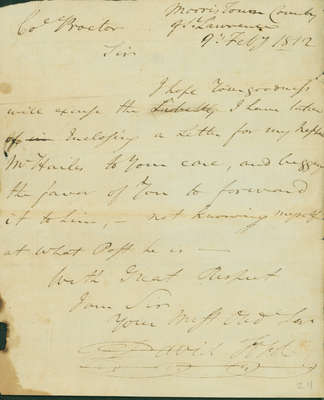 Morris Town County
Col Proctor of St Lawrence
9th Feby 1812
Sir
I hope Your goodness
will excuse the Liberty I have taken
in Enclosing a Letter for my
Mr Hailes to Your care, and begging
the favor of You to forward
it to him, — not knowing myself
at What Post he is —
With Great Respect
I am Sir
Your Most Obd Ser
David